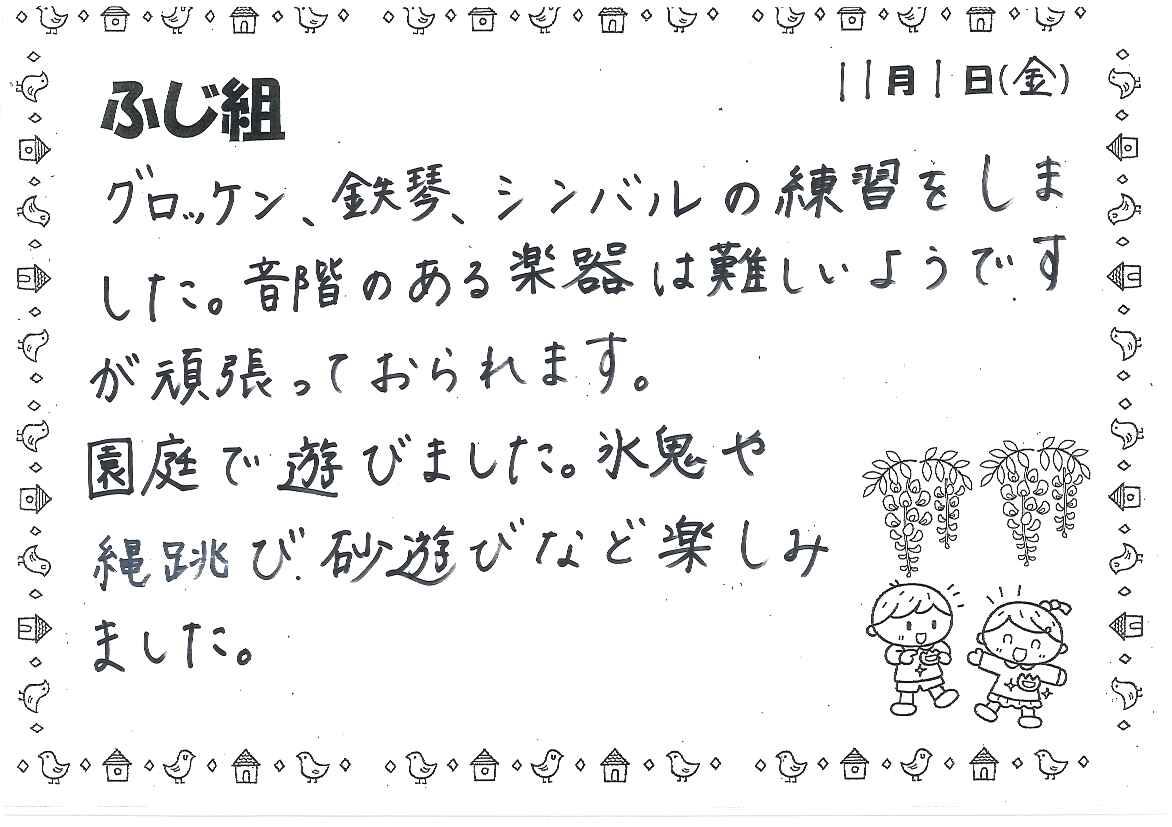 11月1日(金)
ふじ組
グロッケン、鉄琴、シンバルの練習をしま
した。音階のある楽器は難しいようです
が頑張っておられます。
園庭で遊びました。氷鬼や
縄跳び、砂遊びなど楽しみ
ました。